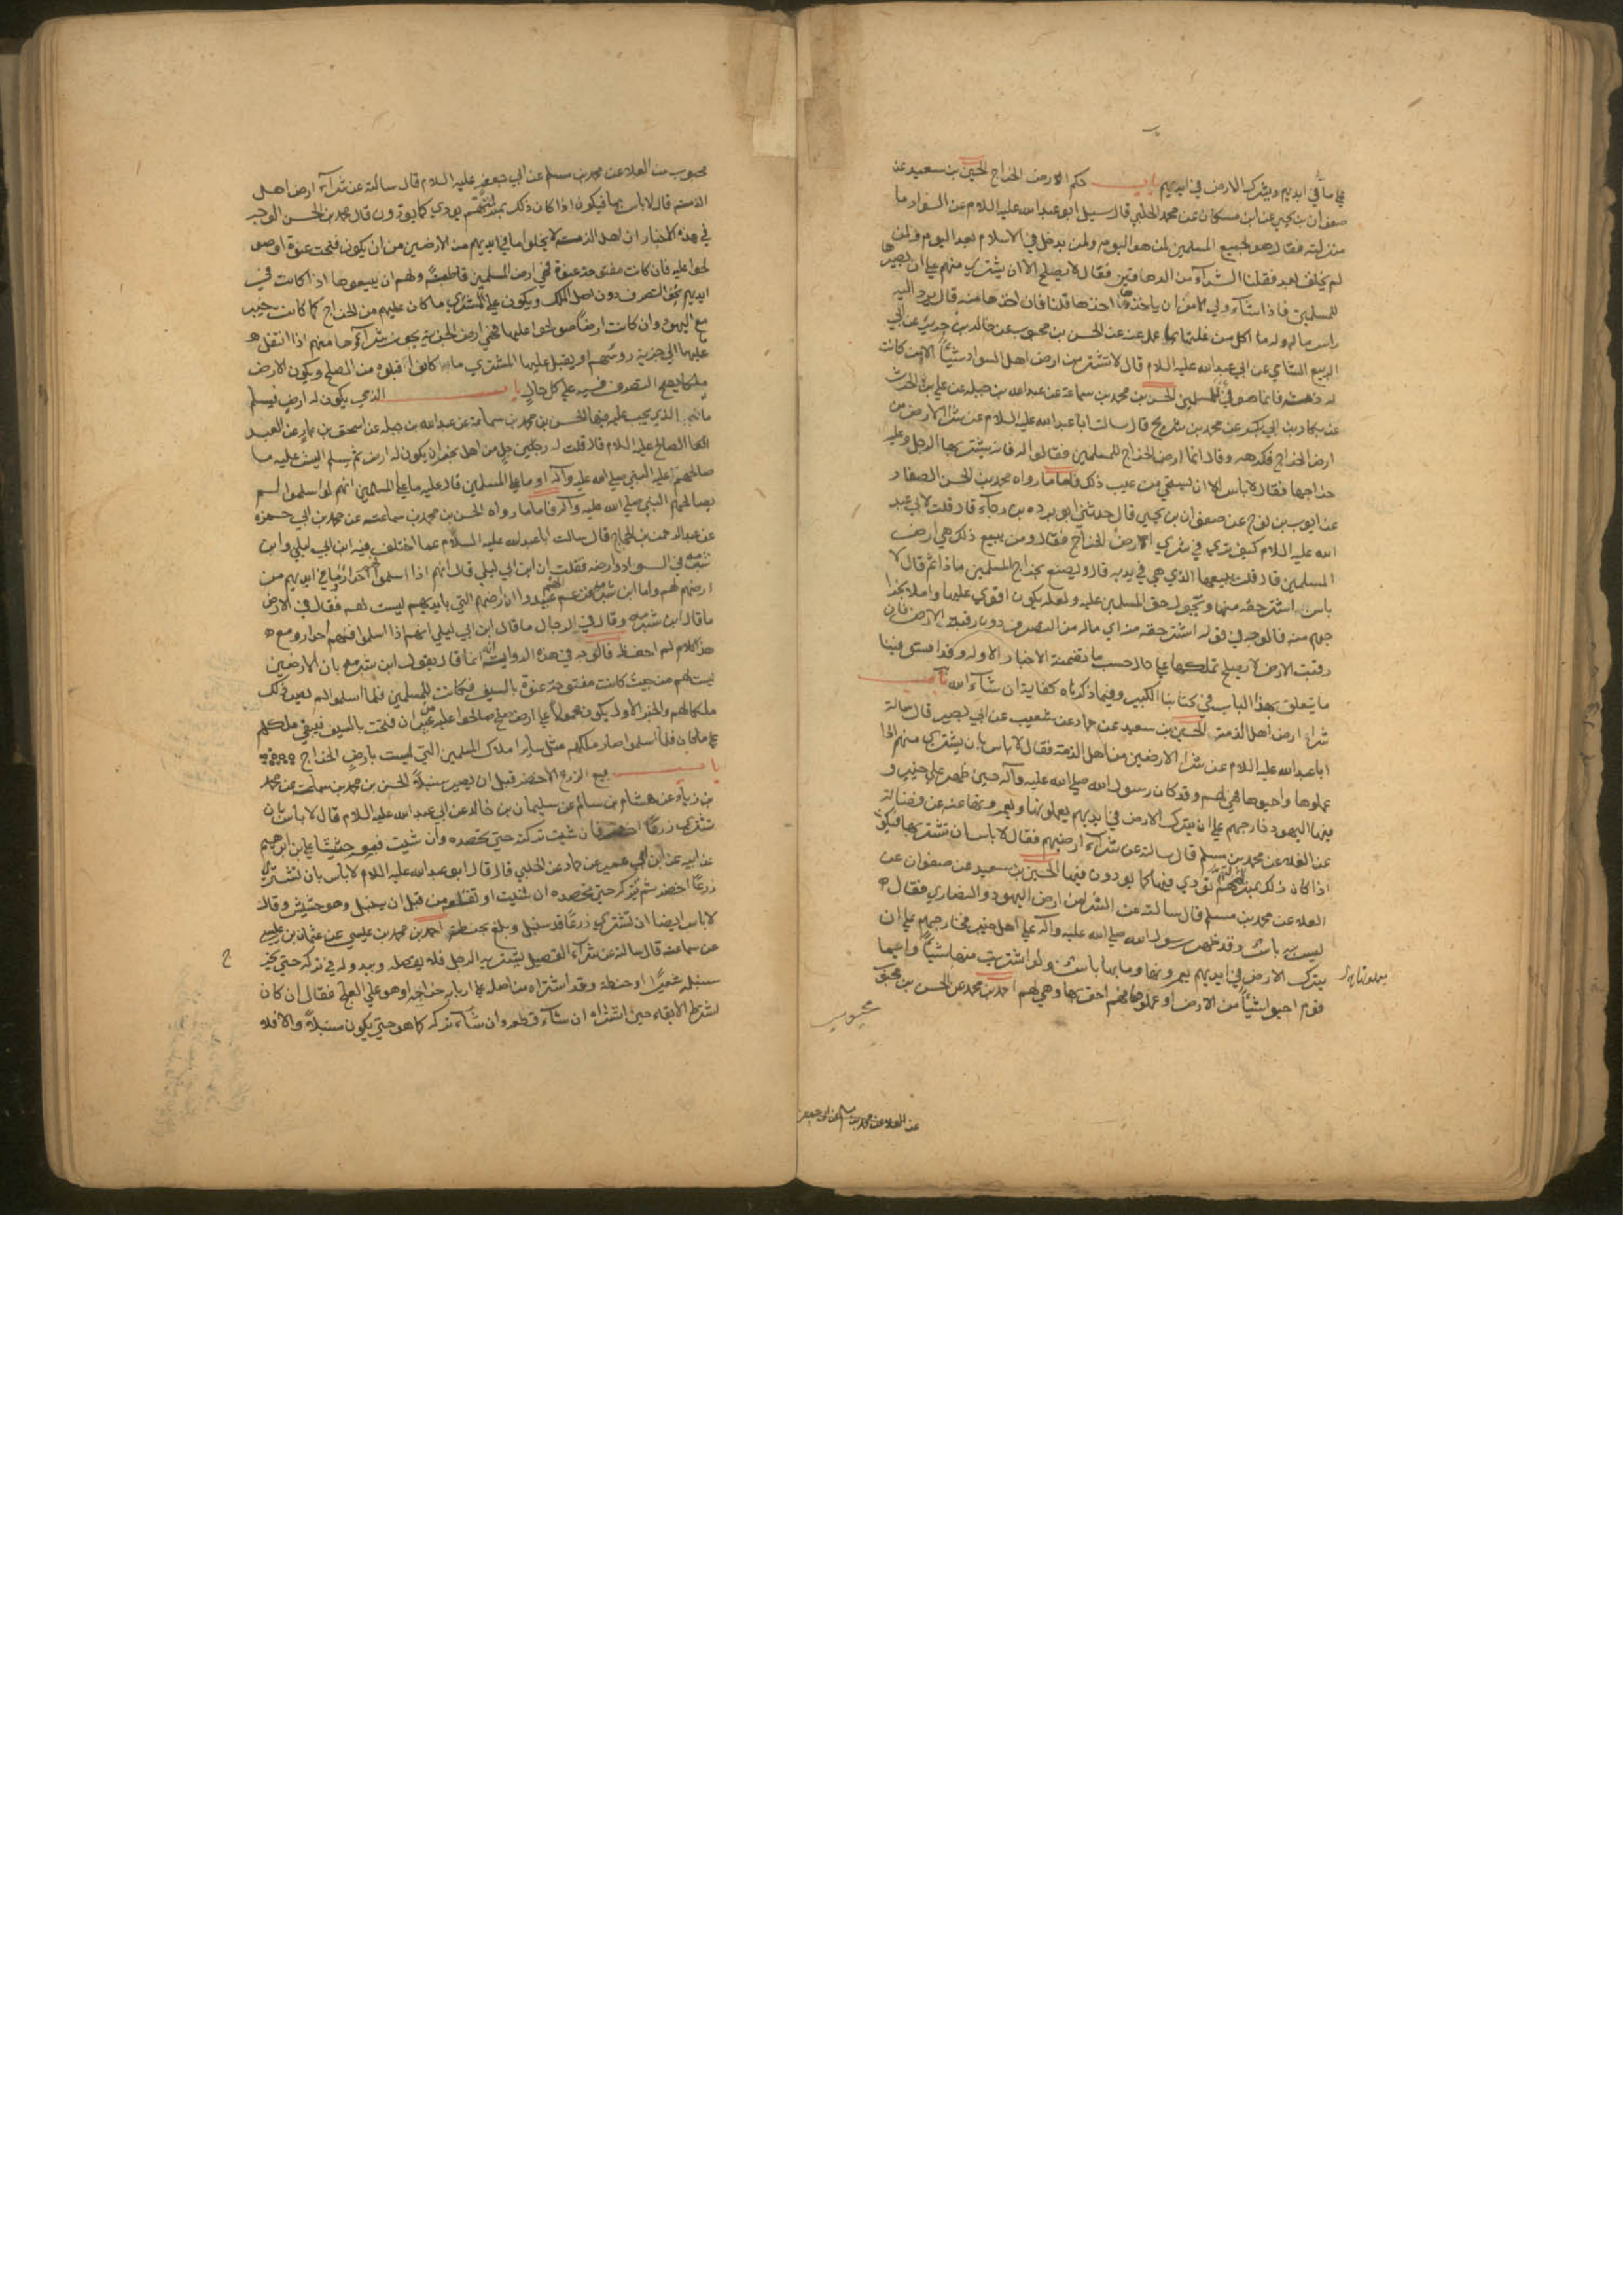 علي ما في ايديهم ويترك الارض في ايديهم باب حكم الارض الخراج الحسين بن سعيد عن
صفوان بن يحيي عن ابن مسكان عن محمد الحلبي قال سيل ابو عبد الله عليه السلام عن السواد ما
منزلته فقال هو لجميع المسلمين لمن هو اليوم ولمن يدخل في الاسلام بعد اليوم ولمن
لم يخلق بعد فقلنا الشرآء من الدهاقين فقال لا يصلح الا ان يشتري منهم علي ان يصيرها
للمسلمين فاذا شآء ولي الامر ان ياخذها اخذها قلنا فان اخذها منه قال يرد اليه
راس ماله وله ما اكل من غلتها بما عمل عنه عن الحسن بن محبوب عن خالد بن جرير عن ابي
الربيع الشامي عن ابي عبد الله عليه السلام قال لا تشتر من ارض اهل السواد شيئاً الا من كانت
له ذمة فانما هو فئ للمسلمين الحسن بن محمد بن سماعة عن عبد الله بن جبله عن علي بن الحرث
عن بكار بن ابي بكر عن محمد بن شريح قال سالت ابا عبد الله عليه السلام عن شرا الارض من
ارض الخراج فكرهه وقال انما ارض الخراج للمسلمين فقالوا له فانه يشتريها الرجل وعليه
خراجها فقال لا باس الا ان يستحي من عيب ذلك فاما ما رواه محمد بن الحسن الصفار
عن ايوب بن نوح عن صفوان بن يحيي قال حدثني ابو برده بن رجآء قال قلت لابي عبد
الله عليه السلام كيف تري في شري الارض الخراج فقال ومن يبيع ذلك هي ارض
المسلمين قال قلت يبيعها الذي هي في يديه قال ويصنع بخراج المسلمين ماذا ثم قال لا
باس اشتر حقه منها وتحول حق المسلمين عليه ولعله يكون اقوي عليها واملا بخرا
جهم منه فالوجه في قوله اشتر حقه منه اي ماله من التصرف دون رقبة الارض فان
رقبت الارض لا يصلح تملكها علي حال حسب ما تضمنة الاخبار الاوله وقد استوفينا
ما يتعلق بهذا الباب في كتابنا الكبير وفيما ذكرناه كفاية ان شآء الله باب
شراء ارض اهل الذمة الحسين بن سعيد عن حماد عن شعيب عن ابي بصير قال سالت
ابا عبد الله عليه السلام عن شرا الارضين من اهل الذمة فقال لا باس بان يشتري منهم اذا
عملوها واحيوها فهي لهم وقد كان رسول الله صلي الله عليه وآله حين ظهر علي خيبر و
فيها اليهود خارجهم علي ان يترك الارض في ايديهم يعملونها ويعمرونها عنه عن فضالة
عن العلا عن محمد بن مسلم قال سالته عن شرآء ارضهم فقال لا باس ان تشتريها فيكون
اذا كان ذلك بمنزلتهم تؤدي فيها كما يودون فيها الحسين بن سعيد عن صفوان عن
العلا عن محمد بن مسلم قال سالته عن الشرا من ارض اليهود والنصاري فقال
ليس به باس وقد ظهر رسول الله صلي الله عليه وآله علي اهل خيبر فخارجهم علي ان
يترك الارض في ايديهم يعمرونها وما بها باس ولو اشتريت منها شيئاً وايما
قوم احيوا شيئاً من الارض او عملوها فهم احق بها وهي لهم احمد بن محمد عن الحسن بن محبوب
محبوب
عن العلا عن محمد بن مسلم عن ابي جعفر
محبوب عن العلا عن محمد بن مسلم عن ابي جعفر عليه السلام قال سالته عن شرآء ارض اهل
الذمة قال لا باس بها فيكون اذا كان ذلك بمنزلتهم يودي كما يودون قال محمد بن الحسن الوجه
في هذه الاخبار ان اهل الذمة لا يخلوا ما في ايديهم من الارضين من ان يكون فتحت عنوة او صو
لحوا عليه فان كانت مفتوحة عنوة فهي ارض المسلمين قاطبةً ولهم ان يبيعوها اذا كانت في
ايديهم بحق التصرف دون اصل الملك ويكون علي المشتري ما كان عليهم من الخراج كما كانت خيبر
مع اليهود وان كانت ارضاً صولحوا عليها فهي ارض الجزية يجوز شرآؤها منهم اذا انتقل
عليها الي جزية روسهم او يقبل عليها المشتري ما كانوا قبلوه من الصلح ويكون الارض
ملكا يصح التصرف فيه علي كل حال باب الذمي يكون له ارض فيسلم
ما الذي يجب عليه فيها الحسن بن محمد بن سماعة عن عبد الله بن جبله عن اسحق بن عمار عن العبد
الصالح عليه السلام قال قلت له رجل من اهل نجران يكون له ارض ثم يسلم اليش عليه ما
صالحهم عليه النبي صلي الله عليه وآله او ما علي المسلمين قال عليه ما علي المسلمين انهم لو اسلموا لم
يصالحهم النبي صلي الله عليه وآله فاما ما رواه الحسن بن محمد بن سماعة عن محمد بن ابي حمزه
عن عبد الرحمن بن الحجاج قال سالت ابا عبد الله عليه السلام عما اختلف فيه ابن ابي ليلي وابن
شبرمه في السواد وارضه فقلت ان ابن ابي ليلي قال انهم اذا اسلموا احرار وما في ايديهم من
ارضهم لهم واما ابن شبرمه فزعم انهم عبيد وان ارضهم التي بايديهم ليست لهم فقال في الارض
ما قال ابن شبرمه وقال في الرجال ما قال ابن ابي ليلي انهم اذا اسلموا فهم احرار ومع
هذا كلام لم احفظه فالوجه في هذه الرواية انه انما قال بقول ابن شبرمه بان الارضين
ليست لهم من حيث كانت مفتوحة عنوة بالسيف فكانت للمسلمين فلما اسلموا لم يعيد ذلك
ملكا لهم والخبر الاول يكون محمولاً علي ارض صلح صالحوا عليه من غير ان فتحت بالسيف فيبقي ملكهم
علي ما كان فلما اسلموا صار ملكهم مثل ساير املاك المسلمين التي ليست بارض الخراج
باب بيع الزرع الاخضر قبل ان يصير سنبلاً الحسن بن محمد بن سماعة عن محمد
بن زياد عن هشام بن سالم عن سليمان بن خالد عن ابي عبد الله عليه السلام قال لا باس بان
تشتري زرعاً اخضر فان شيت تركته حتي تحصده وان شيت فبعه حشيشاً علي بن ابرهيم
عن ابيه عن ابن ابي عمير عن حماد عن الحلبي قال قال ابو عبد الله عليه السلام لا باس بان تشتري
زرعاً اخضر ثم تتركه حتي تحصده ان شيت او تقلعه من قبل ان يسنبل وهو حشيش وقال
لا باس ايضا ان تشتري زرعاً قد سنبل وبلغ بحنطة احمد بن محمد بن عيسي عن عثمان بن عيسي
عن سماعة قال سالته عن شرآء القصيل يشتريه الرجل فلا يقصله ويبدو له في تركه حتي يخرج
سنبله شعيراً او حنطة وقد اشتراه من اصله علي اربابه خراجه او هو علي العلج فقال ان كان
اشترط الابقاء حين اشتراه ان شآء قطعه وان شآء تركه كما هو حتي يكون سنبلاً والا فلا